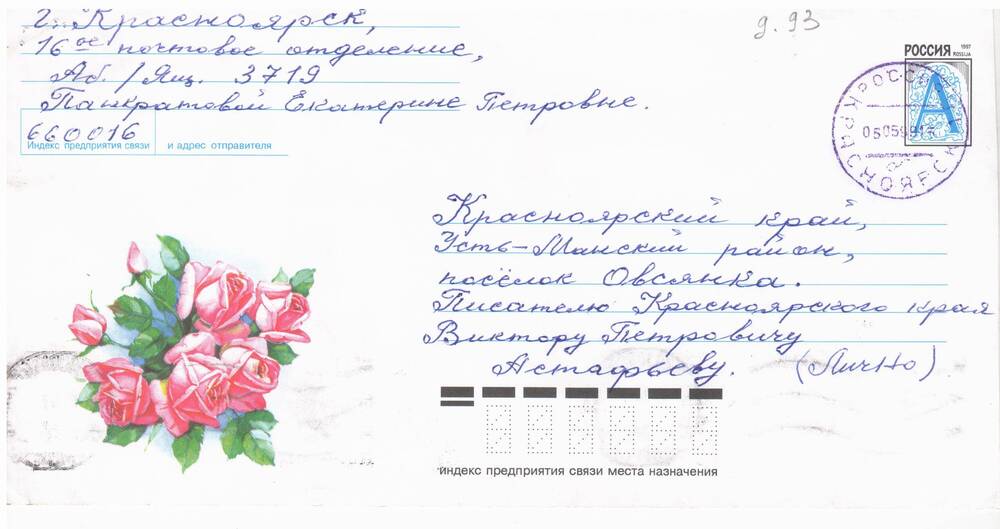 г. Красноярск,
16ое почтовое отделение,
Аб./Ящ. 3719
Панкратовой Екатерине Петровне.
660016
Индекс предприятия связи и адрес отправителя
д. 93
РОССИЯ 1997
ROSSIJA
А
РОССИЯ
КРАСНОЯРСК
Красноярский край,
Усть-Манский район,
посёлок Овсянка.
Писателю Красноярского края
Виктору Петровичу
Астафьеву. (Лично)
индекс предприятия связи места назначения